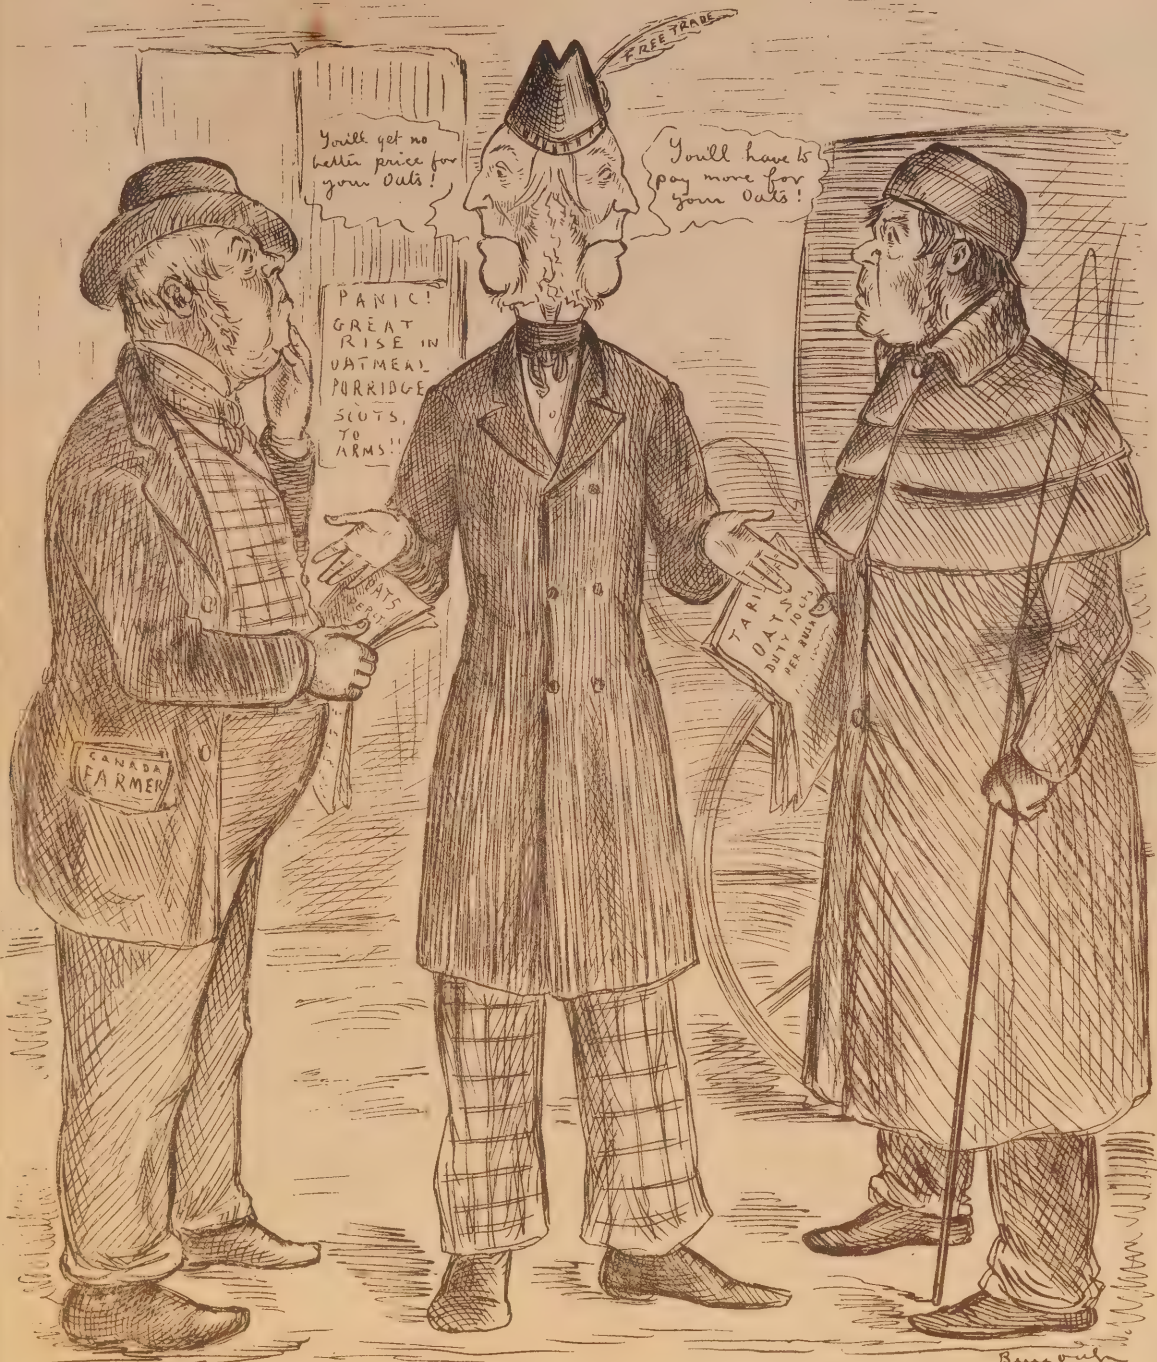 FREE TRADE
You'll get no
better price for
your Oats!
You'll have to
pay more for
your Oats!
PANIC!
GREAT
RISE IN
OATMEAL
PORRIDGE
SCOTS,
TO
ARMS!!
OATS
TARIFF
OATS
DUTY 10 CTS
PER
CANADA
FARMER
Bengough